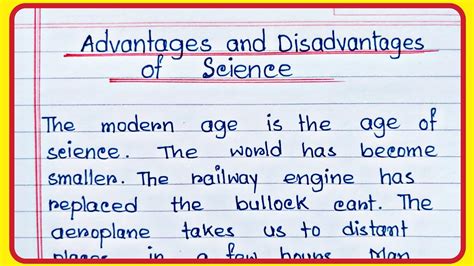 Advantages and Disadvantages
of Science
The modern age is the age of
science. The world has become
smaller. The railway engine has
replaced the bullock cart. The
aeroplane takes us to distant
places in a few hours. Man